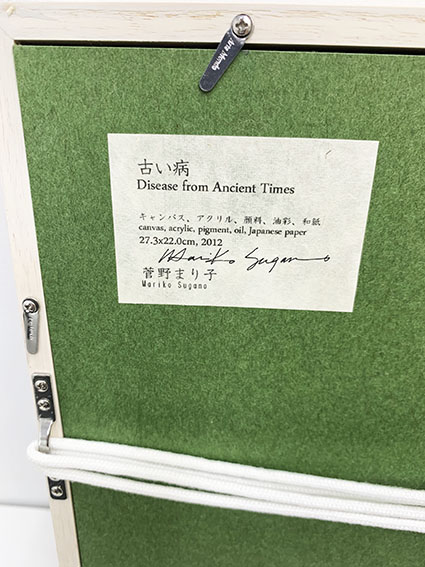 Arte Mondo
古い病
Disease from Ancient Times
キャンバス、アクリル、顔料、油彩、和紙
canvas, acrylic, pigment, oil, Japanese paper
27.3x22.0cm, 2012
Mariko Sugano
菅野まり子
Mariko Sugano